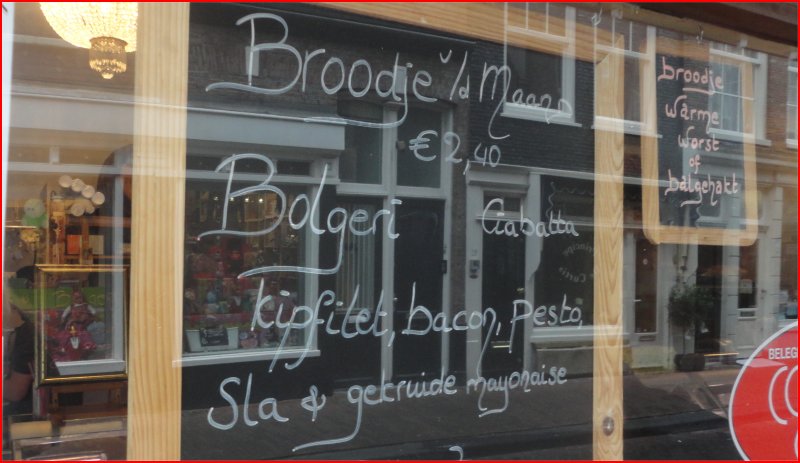 Broodje v/d Maand
€2,40
Bolgeri Ciabatta
kipfilet, bacon, pesto,
Sla & gekruide mayonaise
broodje
warme
worst
of
balgehakt
BELEG